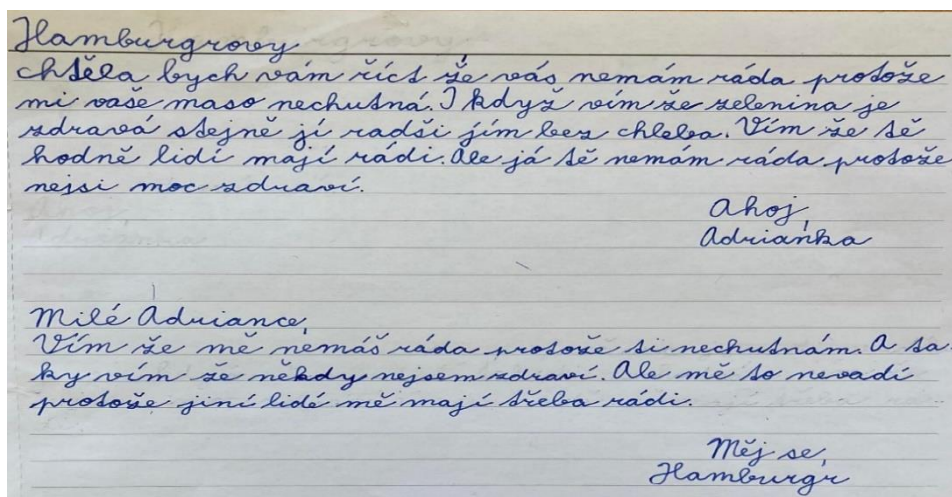 Hamburgrovy
chtěla bych vám říct že vás nemám ráda protože
mi vaše maso nechutná. I když vím že zelenina je
zdravá stejně jí radši jím bez chleba. Vím že tě
hodně lidí mají rádi. Ale já tě nemám ráda protože
nejsi moc zdraví.
Ahoj,
Adrianka
Milé Adriance,
Vím že mě nemáš ráda protože ti nechutnám. A ta-
ky vím že někdy nejsem zdraví. Ale mě to nevadí
protože jiní lidé mě mají třeba rádi.
Měj se,
Hamburgr